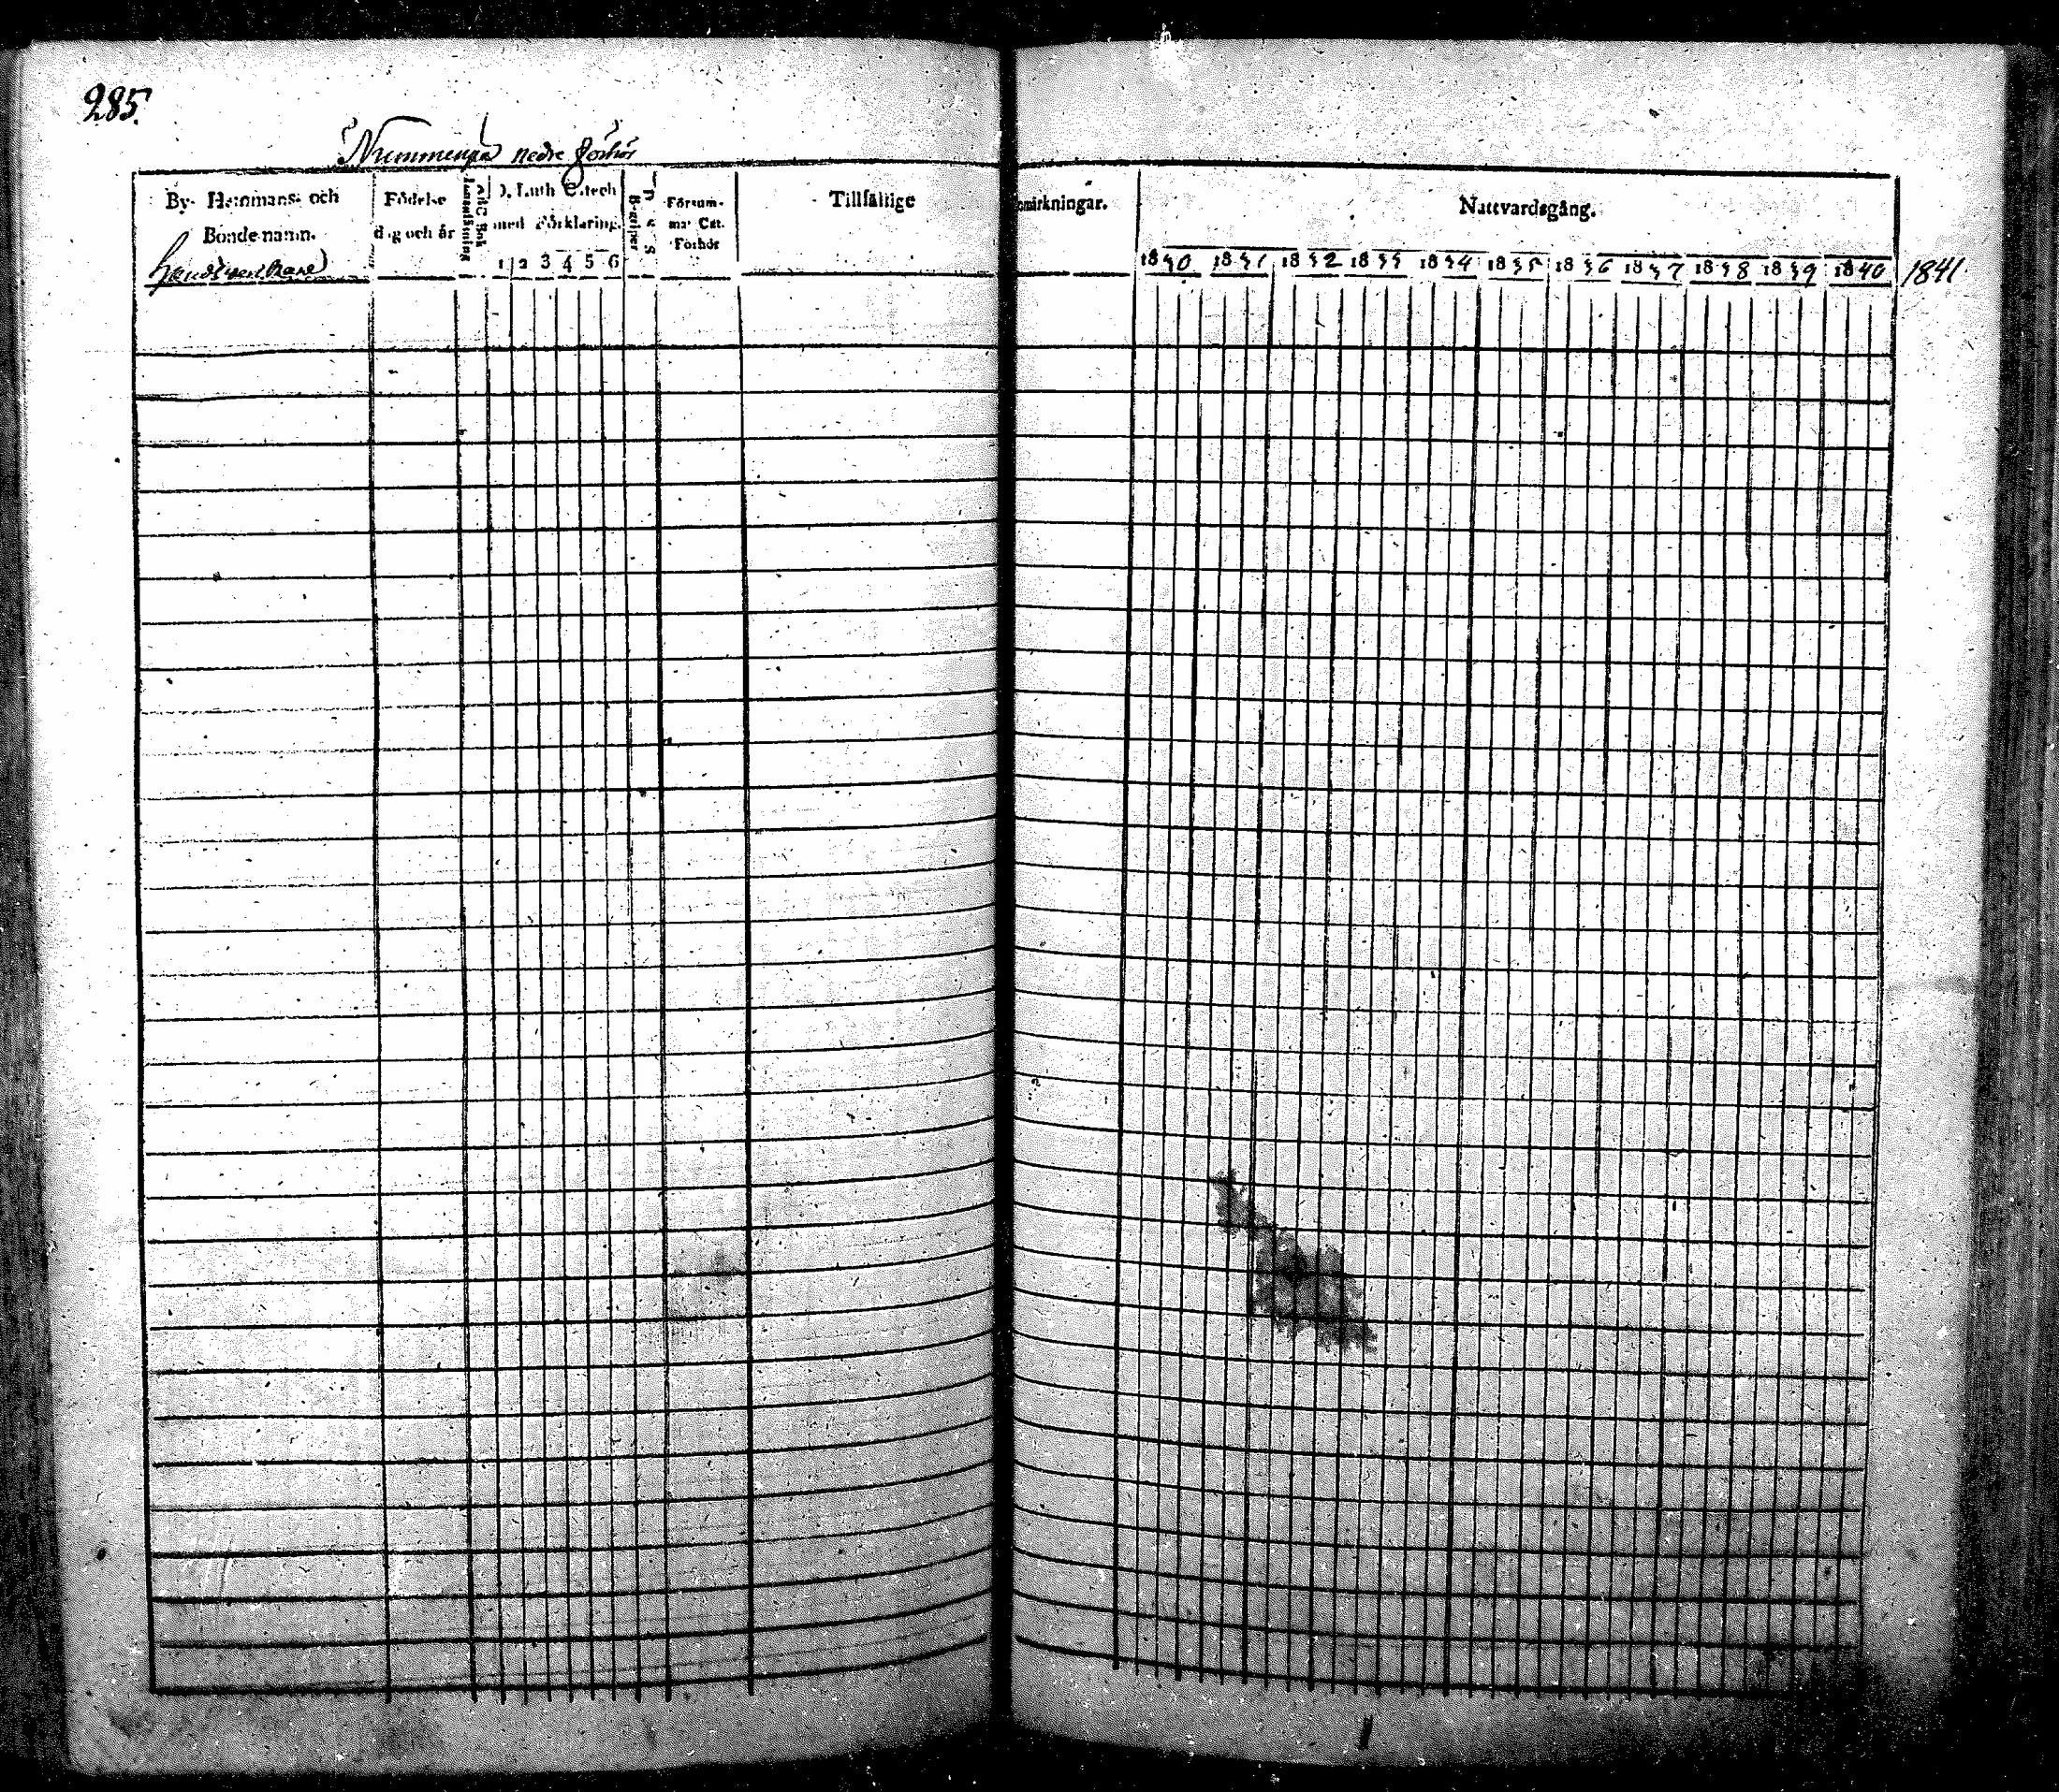 285.
Nummenpää nedre förhör
By- Hemmans- och
Bondenamn.
Handtverkare
Födelse
dag och år
ABC Bok
Innanläsning
D. Luth Catech
med Förklaring.
1 2 3 4 5 6
Begriper
Försum-
mat Cat.
Förhör
Tillfällige
Anmärkningar.
Nattvardsgång.
1830 1831 1832 1833 1834 1835 1836 1837 1838 1839 1840 1841